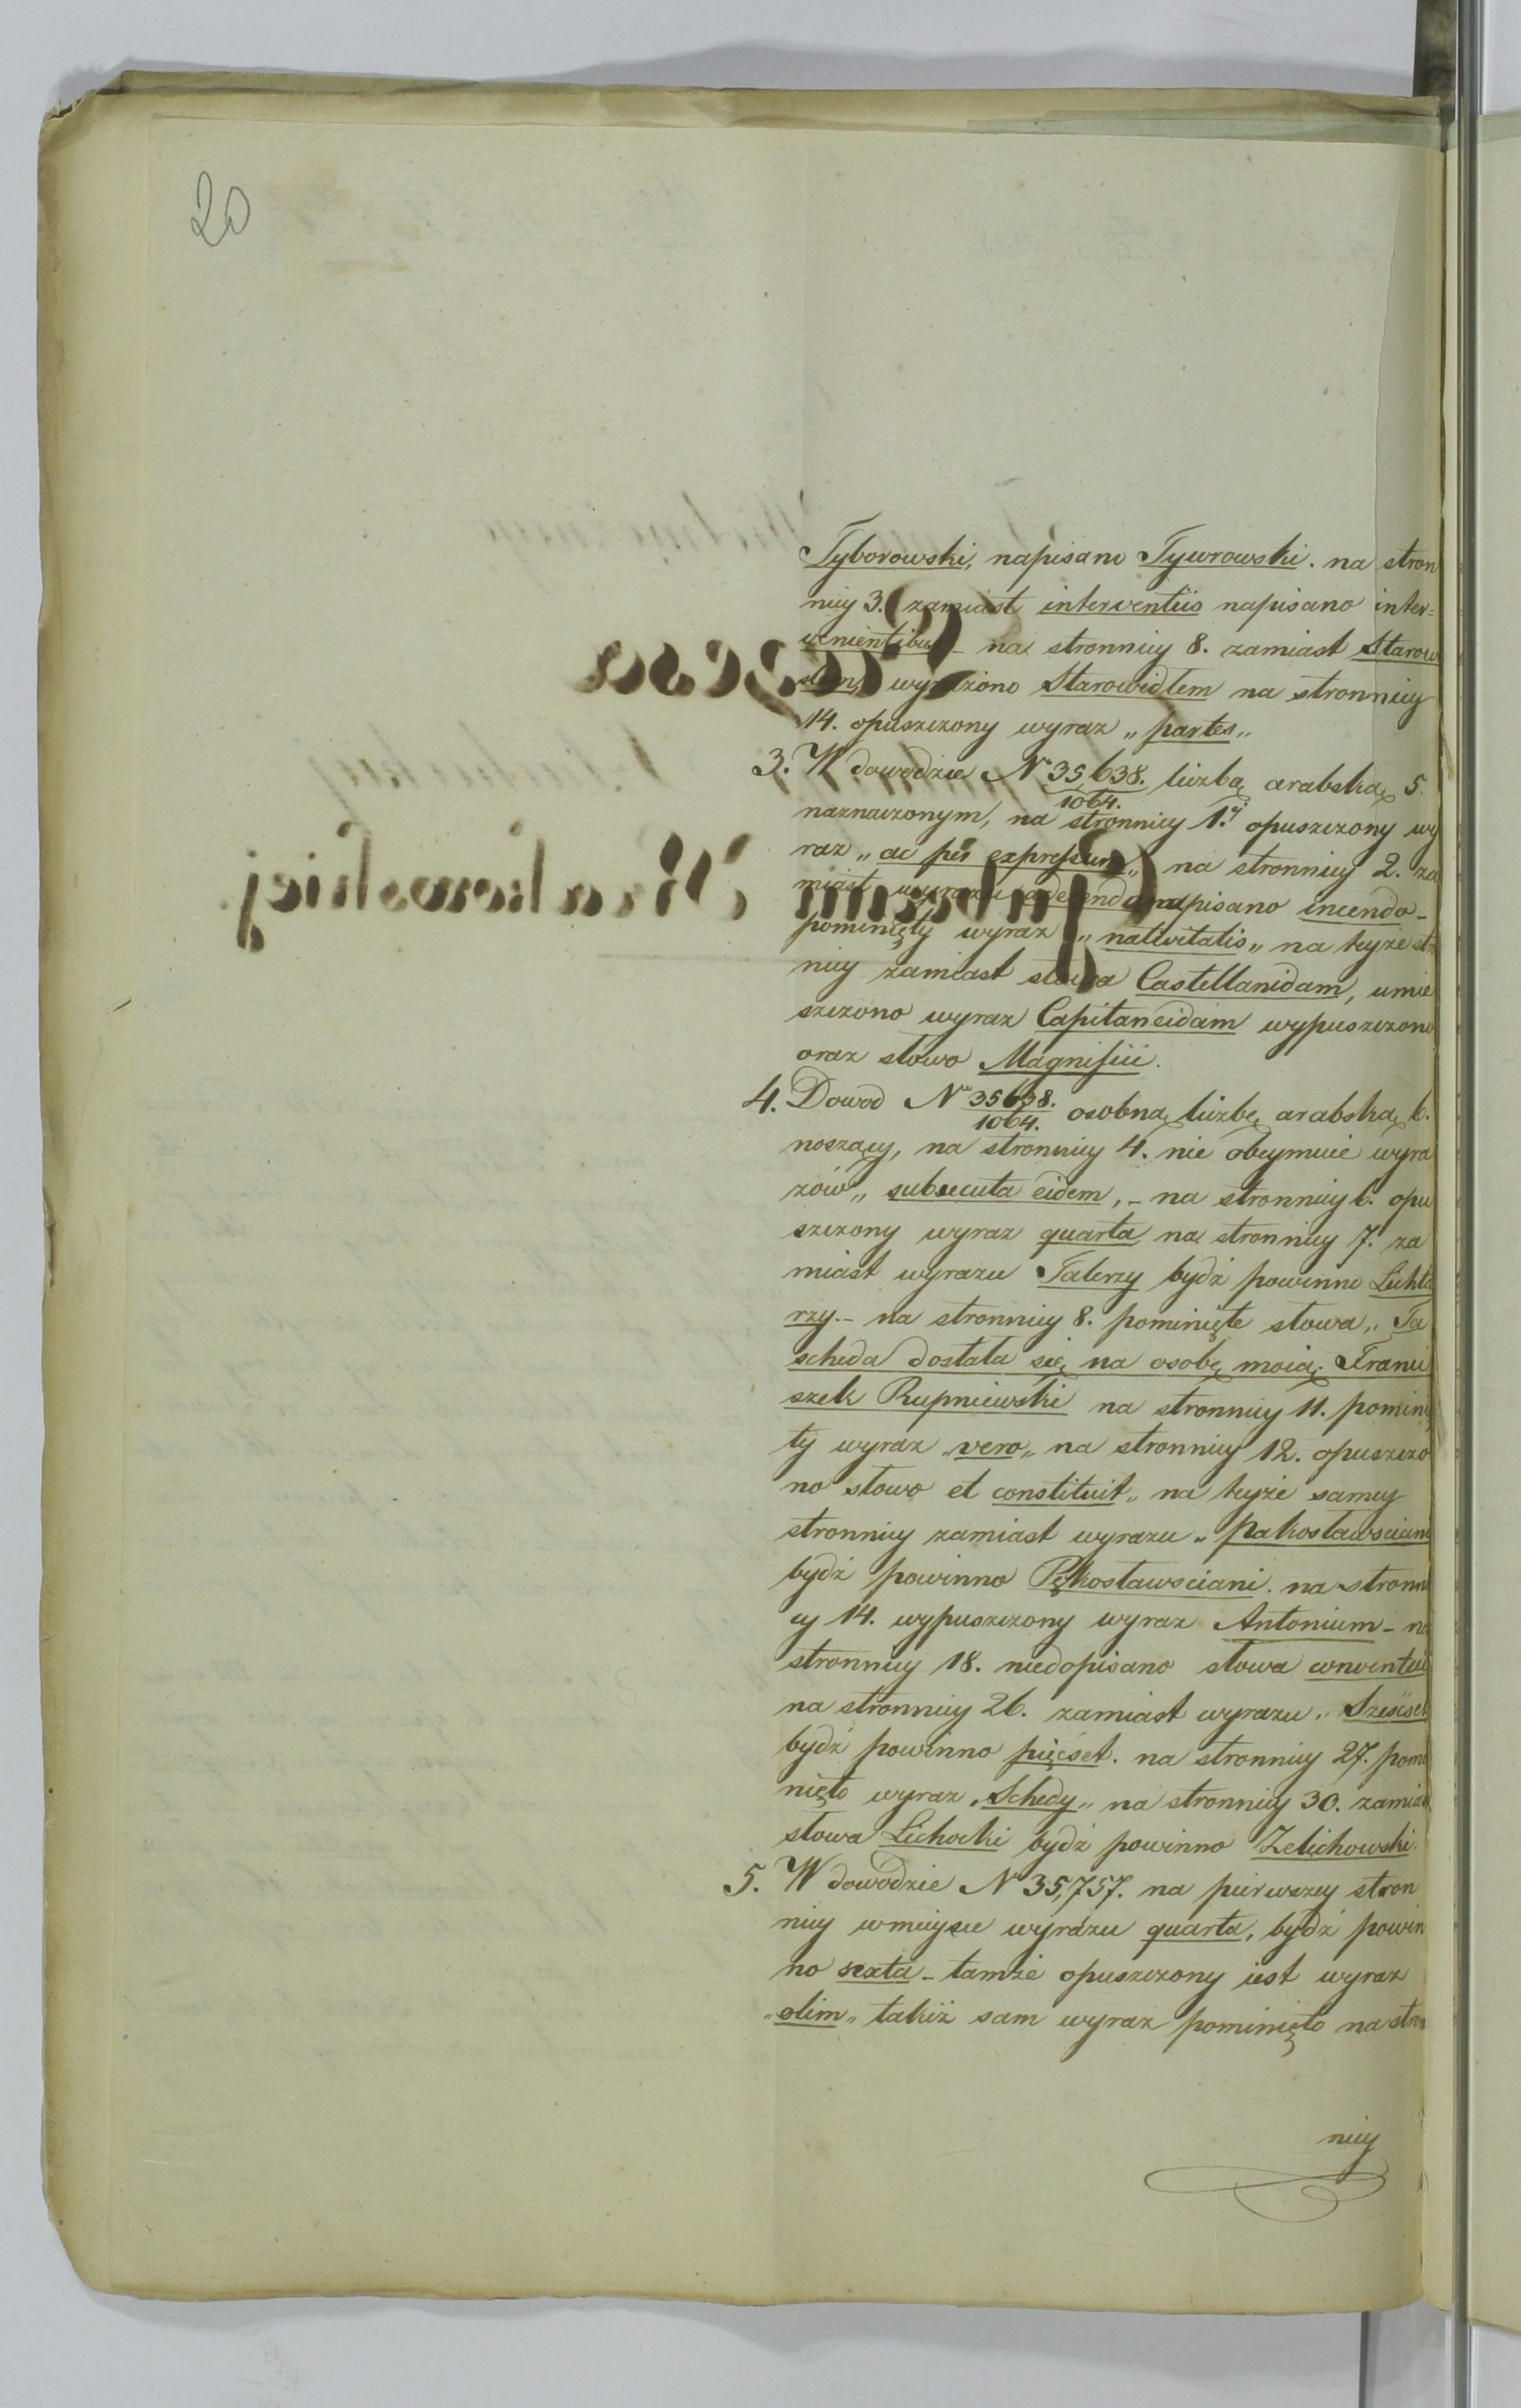 20
Tyborowski, napisano Tywrowski. na stron
nicy 3. zamiast interventiis napisano inter=
venientibus – na stronnicy 8. zamiast Starow
wyrażono Starowidlem na stronnicy
14. opuszczony wyraz „partes„
3. W dowodzie N° 35,638./1064. liczbą arabską 5.
naznaczonym, na stronnicy 1.ey opuszczony wy
raz „ac per expressum„ na stronnicy 2. za
miast wyrazu napisano incendo –
pominięty wyraz „nativitatis„ na teyże str
nicy zamiast słowa Castellanidam, umie
szczono wyraz Capitaneidam wypuszczono
oraz słowo Magnifici.
4. Dowod N° 35638./1064. osobną liczbę arabską 6.
noszący, na stronnicy 4. nie obeymuie wyra
zów „subsecuta eidem, – na stronnicy 6. opu
szczony wyraz quarta na stronnicy 7. za
miast wyrazu Talerzy bydź powinno Lichta
rzy. – na stronnicy 8. pominięte słowa „Ta
scheda dostała się na osobę moią. Franci
szek Rupniewski na stronnicy 11. pominię
ty wyraz „vero„ na stronnicy 12. opuszczo
no słowo et constituit„ na teyże samey
stronnicy zamiast wyrazu „Pakosławsciani
bydź powinno Pękosławsciani. na stronni
cy 14. wypuszczony wyraz Antonium – na
stronnicy 18. niedopisano słowa conventui
na stronnicy 26. zamiast wyrazu „Sześćset
bydź powinno pięćset. na stronnicy 27. pomi
nięto wyraz „Schedy„ na stronnicy 30. zamiast
słowa Lichocki bydź powinno Zelichowski.
5. W dowodzie N° 35,757. na pierwszey stron
nicy w mieysce wyrazu quarta, bydź powin
no sexta – tamże opuszczony iest wyraz
„olim„ takiż sam wyraz pominięto na stron
nicy